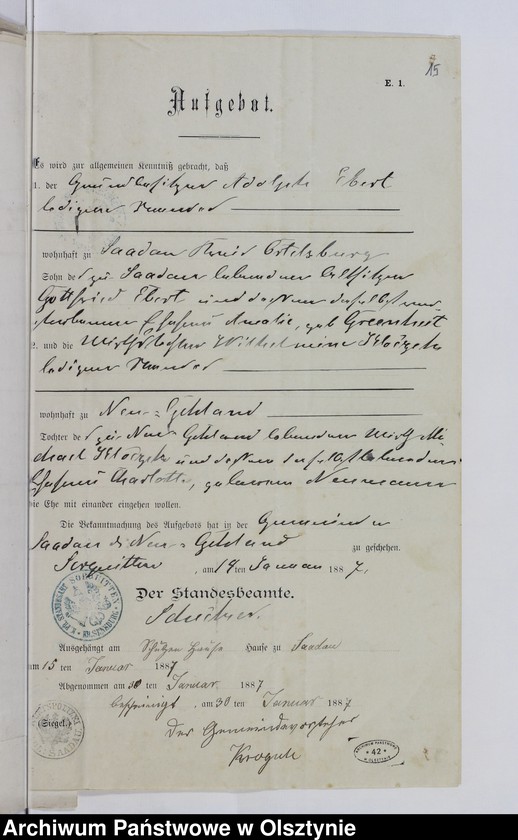 15
E. 1.
Aufgebot.
Es wird zur allgemeinen Kenntniß gebracht, daß
1. der Grundbesitzer Adolph Ebert
ledigen Standes
wohnhaft zu Saadau Kreis Ortelsburg
Sohn des zu Saadau lebenden Altsitzer
Gottfried Ebert und dessen daselbst ver-
storbenen Ehefrau Amalie, geb
2. und die Wirthstochter Wilhelmine
ledigen Standes
wohnhaft zu Neu-Gehland
Tochter des zu Neu Gehland lebenden Wirth Mi-
chael und dessen daselbst lebenden
Ehefrau Charlotte, geborenen Neumann
die Ehe mit einander eingehen wollen.
Die Bekanntmachung des Aufgebots hat in der Gemeinde
Saadau & Neu-Gehland zu geschehen.
Sorquitten, am 14 ten Januar 1887,
Der Standesbeamte.
K. PR. STANDESAMT SORQUITTEN KR. SENSBURG
Ausgehängt am Schulzen Hause Hause zu Saadau
am 15 ten Januar 1887
Abgenommen am 30 ten Januar 1887
bescheinigt, am 30 ten Januar 1887
(Siegel.)
Der Gemeindevorsteher
ARCHIWUM PAŃSTWOWE
42
W OLSZTYNIE
Archiwum Państwowe w Olsztynie